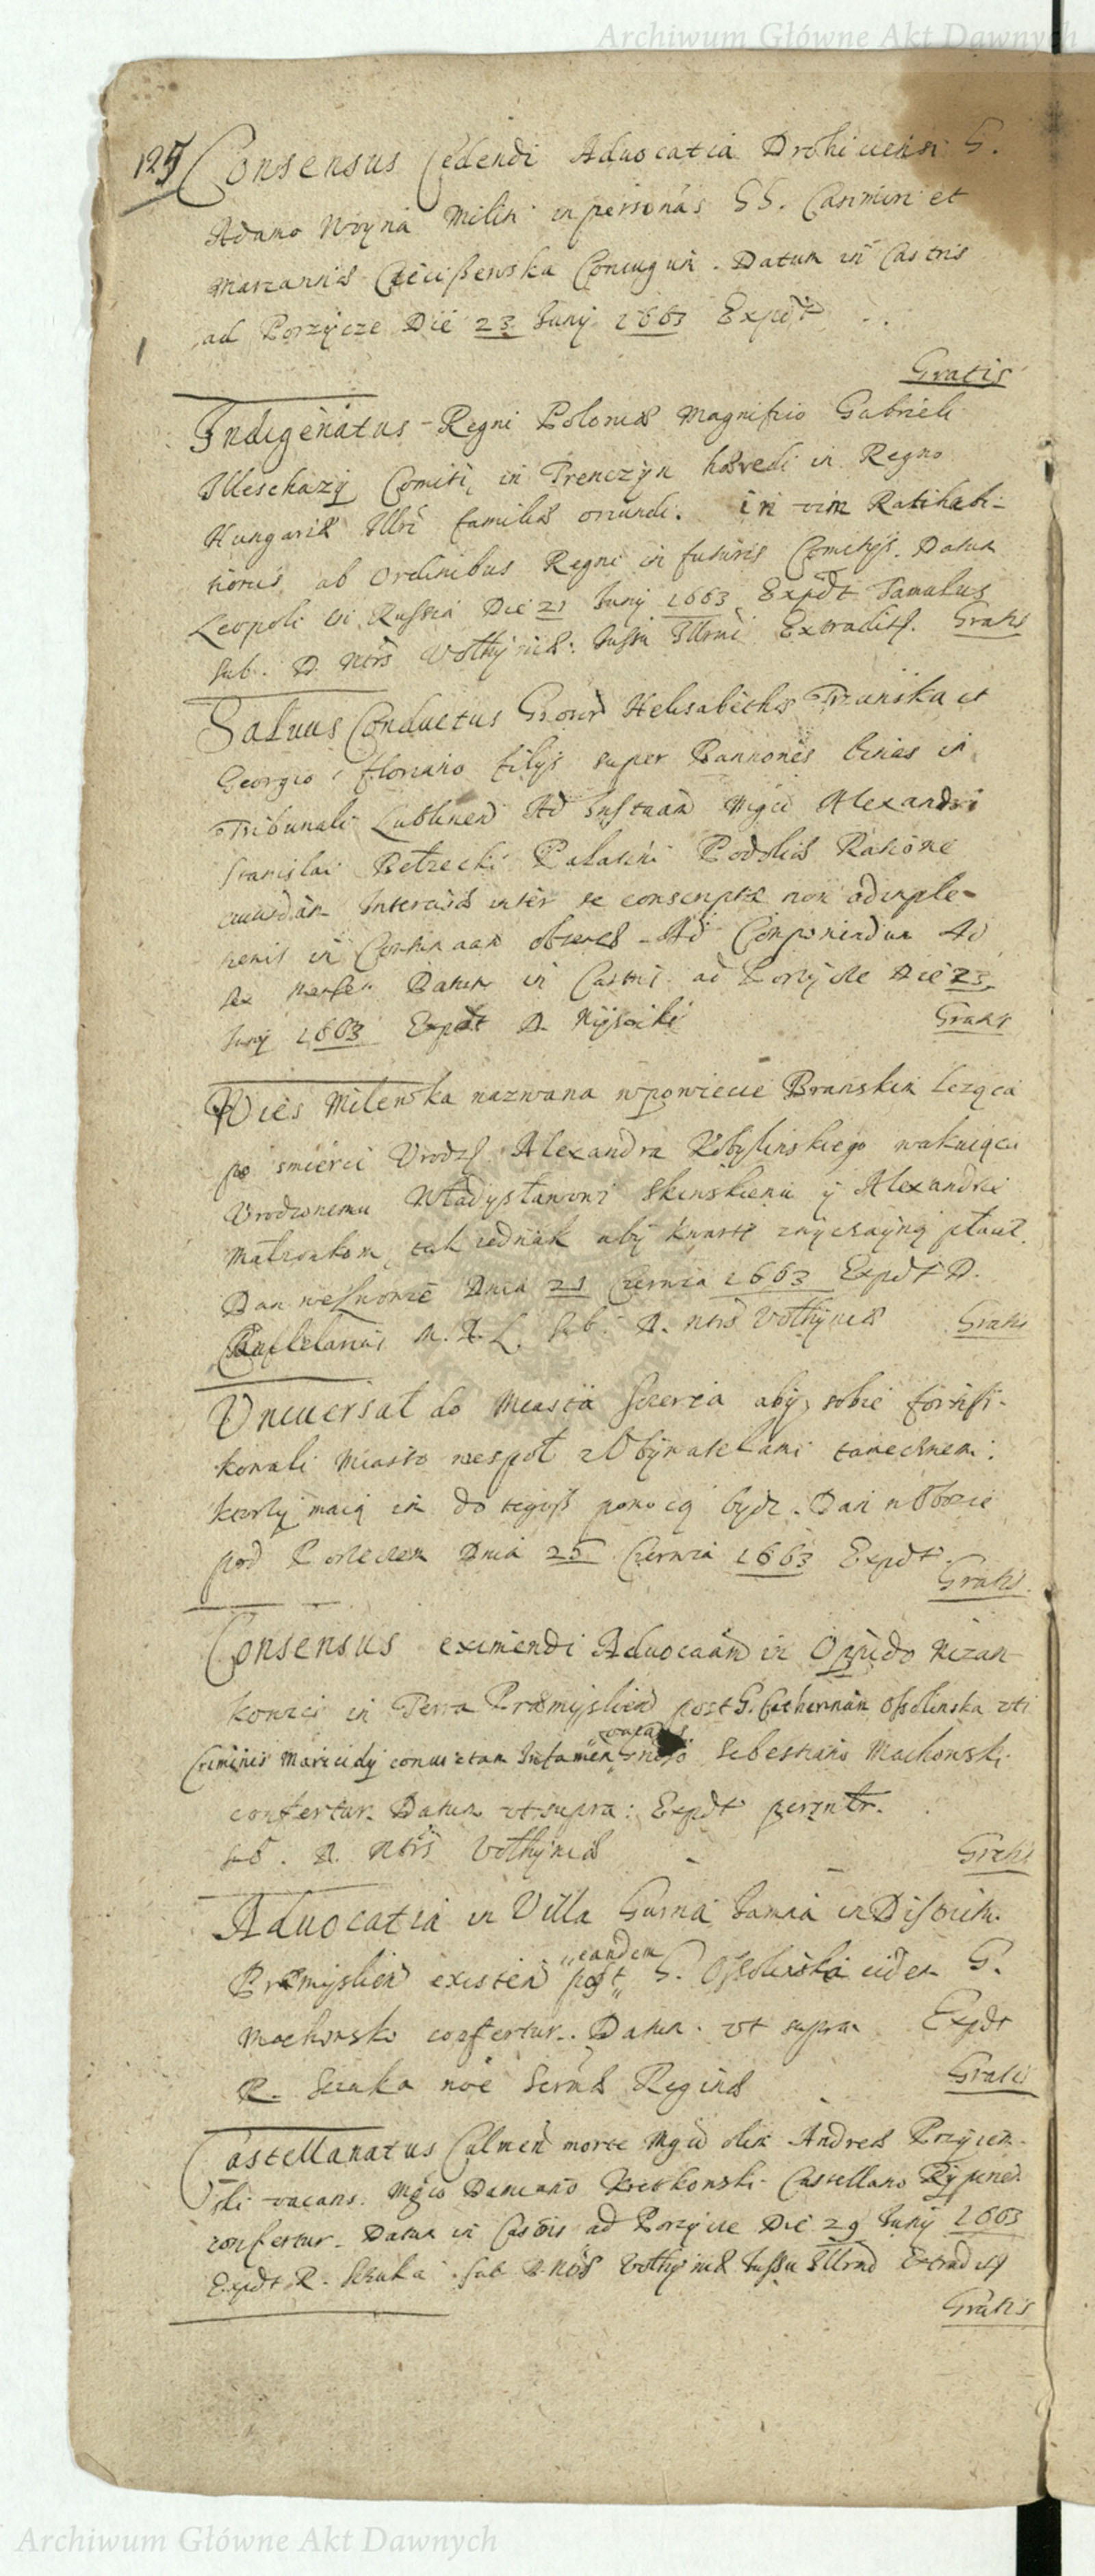 Archiwum Główne Akt Dawnych
125
Consensus Cedendi Aduocatia Drohiciensi G.
Adamo Woyna Militi in personas GG. Casimiri et
Marzannæ Coniugum. Datum in Castris
ad Porzycze Die 23 Juny 1663 Expdt
Gratis
Indigenatus Regni Poloniæ Magnifico Gabrieli
Illeschazy Comiti in Trenczyn hæredi in Regno
Hungariæ Illri familiæ oriundi. in vim Ratihabi-
tionis ab Ordinibus Regni in futuris Comitijs. Datum
Leopoli in Russia Die 21 Juny 1663 Expdt Famulus
sub. D. Ntris Vołhyniæ. Jussu Illrmi Extradit. Gratis
Saluus Conductus Helisabethæ et
Georgio Floriano filijs super Bannones binas in
Tribunali Lublinen Ad Instuam Mgci Alexandri
Stanislai Bełzecki Palatini Podoliæ Ratione
cuiusdam Intercisæ inter se conscriptæ non adimple-
tionis in Contuaam obtentas Ad Componendum Ad
sex menses Datum in Castris ad Porzycze Die 23
Juny 1663 Expdt D. Gratis
Wies Milewska nazwana w powiecie Branskim leząca
po smierci Vrodz. Alexandra Kobylinskiego wakuiąca
Vrodzonemu Władysławowi Skinskiemu y Alexandrze
Małzonkom, tak iednak aby kwartę zwyczayną płacił.
Dan we Lwowie Dnia 21 Czerwca 1663 Expdt D.
Cancellarius M. D. L. sub. D. Ntris Vołhyniæ Gratis
Vniuersał do Miasta aby sobie fortifi-
kowali Miasto wespoł z Obywatelami tamecznemi:
ktorzy maią im do tegosz pomocą bydz. Dan w Obozie
pod Porzeczem Dnia 25 Czerwca 1663 Expdt
Gratis
Consensus eximendi Aduocaam in Oppido Nizan-
kowici in Terra Præmyslien post G. Catherinam Ossolinska vti
Criminis Maricidij conuictam Infamem
vacans
Sebestiano Machowski
confertur. Datum vt supra: Expdt
sub. D. Ntris Vołhyniæ Gratis
Aduocatia in Villa in Districtu
Præmyslien existen post
eandem
G. Ossolinska eidem G.
Machowski confertur. Datum vt supra Expdt
R. Szuka noe Sermæ Reginæ Gratis
Castellanatus Culmen morte Mgci olim Andreæ
ski vacans. Mgco Damiano Kretkowski Castellano Rypinen.
confertur. Datum in Castris ad Porzycze Die 29 Juny 1663
Expdt R. Szuka. sub D. Ntris Vołhyniæ Jussu Illrmi Extradit
Gratis
Archiwum Główne Akt Dawnych